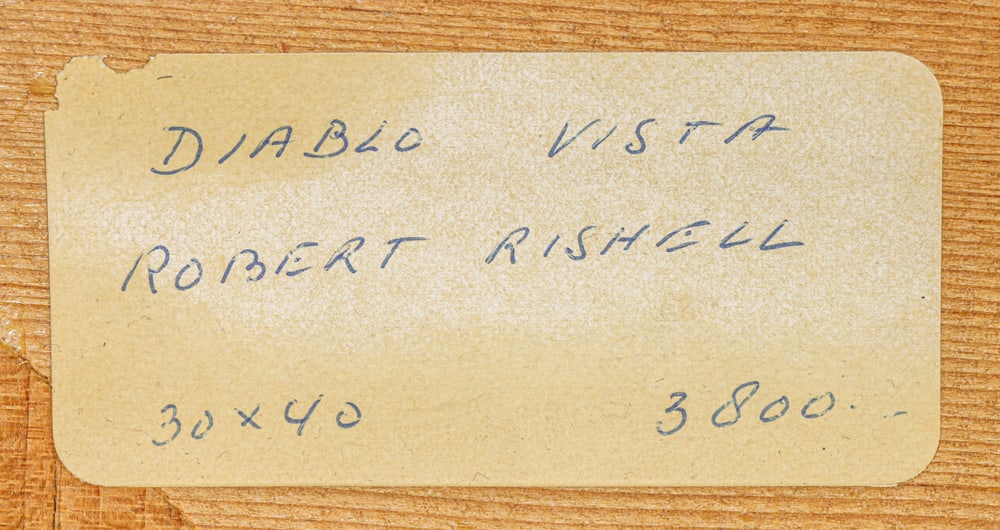 DIABLO VISTA
ROBERT RISHELL
30 x 40 3800.--